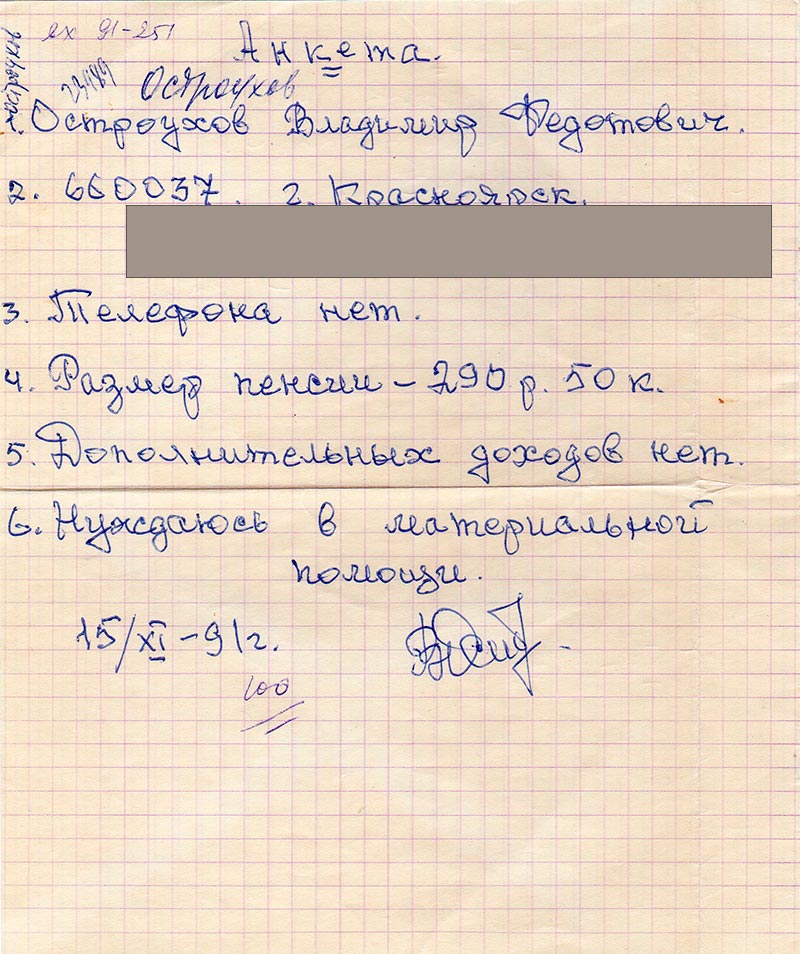 вх 91-251
Анкета.
23489
Остроухов
1. Остроухов Владимир Федотович.
2. 660037. г. Красноярск.
3. Телефона нет.
4. Размер пенсии – 290 р. 50 к.
5. Дополнительных доходов нет.
6. Нуждаюсь в материальной
помощи.
15/XI – 91 г.
100